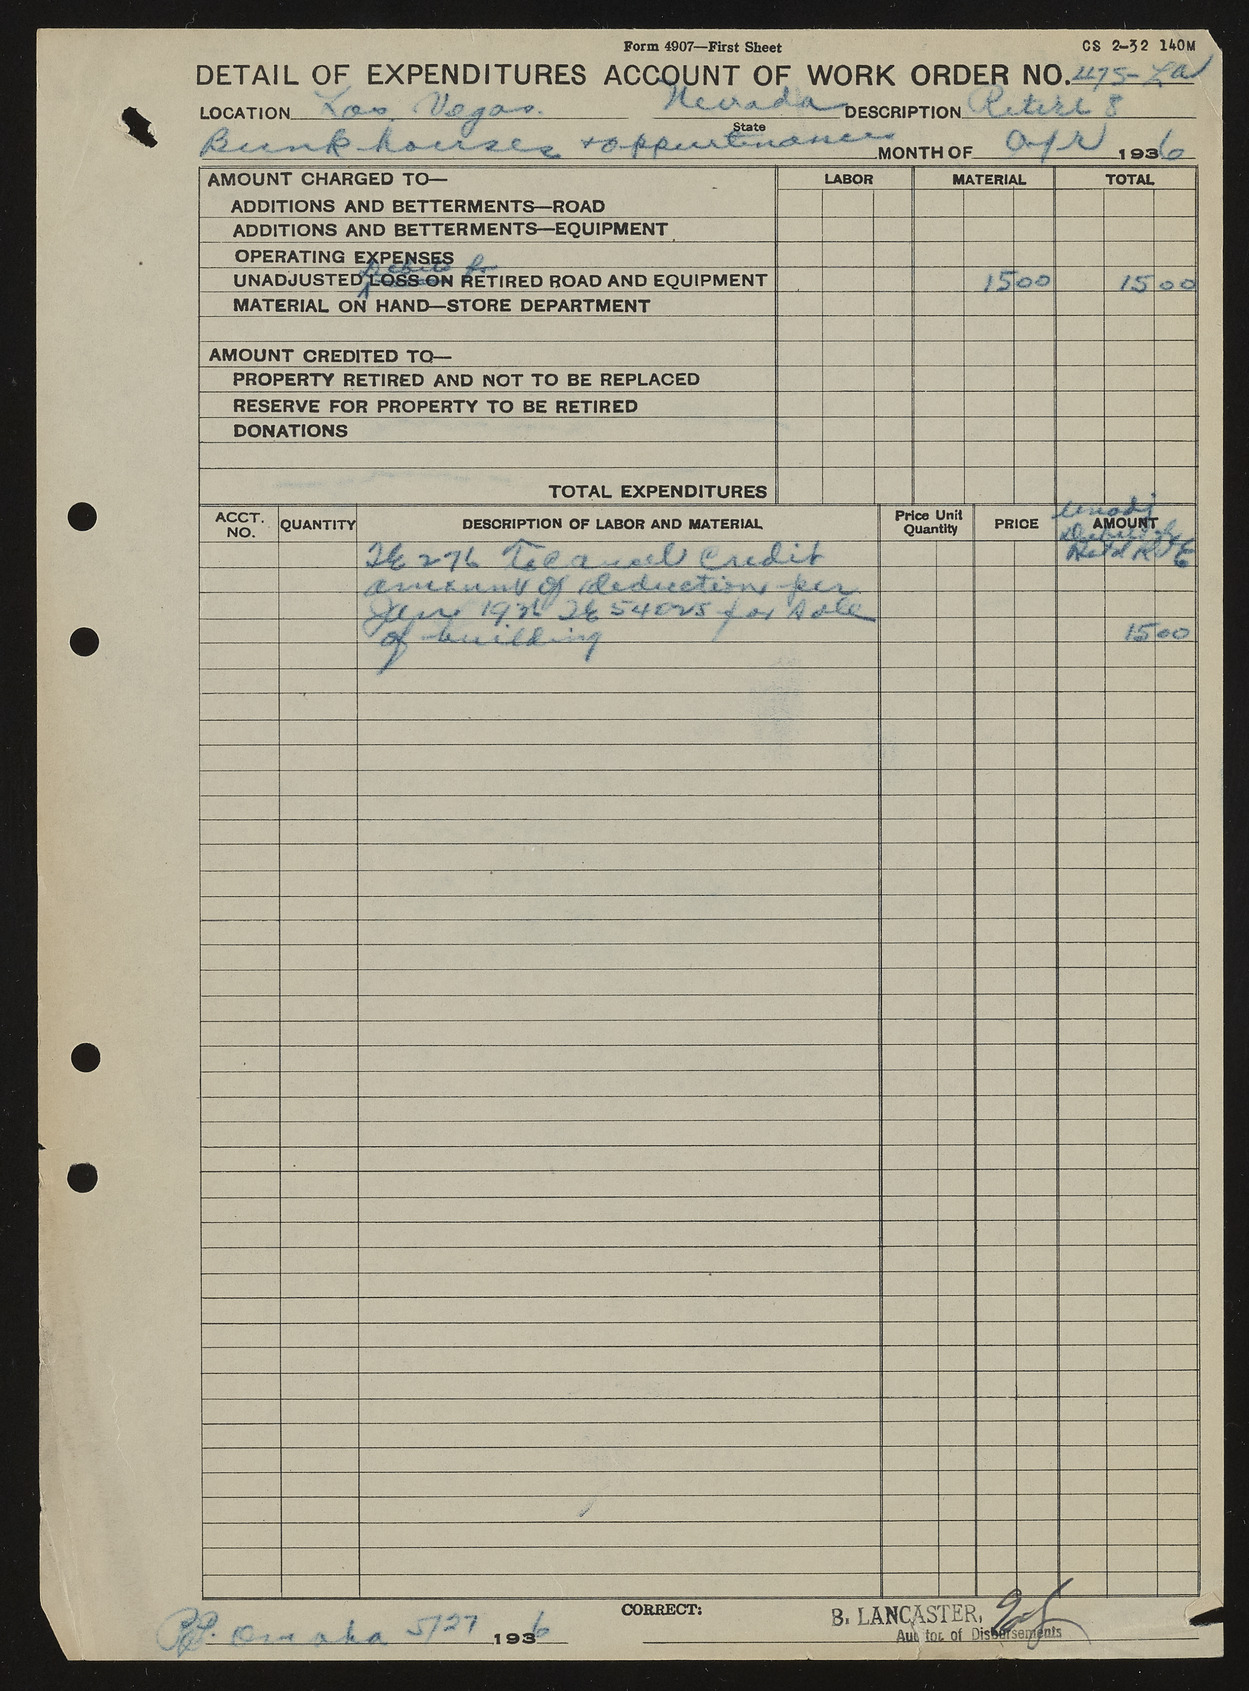 Form 4907—First Sheet
CS 2-32 140M
DETAIL OF EXPENDITURES ACCOUNT OF WORK ORDER NO. 475-LA
LOCATION Las Vegas. Nevada DESCRIPTION Retire 8
State
Bunk houses + appurtenances MONTH OF Apr 1936
AMOUNT CHARGED TO— LABOR MATERIAL TOTAL
ADDITIONS AND BETTERMENTS—ROAD
ADDITIONS AND BETTERMENTS—EQUIPMENT
OPERATING EXPENSES
Debits for
UNADJUSTED LOSS ON RETIRED ROAD AND EQUIPMENT 1500 1500
MATERIAL ON HAND—STORE DEPARTMENT
AMOUNT CREDITED TO—
PROPERTY RETIRED AND NOT TO BE REPLACED
RESERVE FOR PROPERTY TO BE RETIRED
DONATIONS
TOTAL EXPENDITURES
Unadj
ACCT. NO. QUANTITY DESCRIPTION OF LABOR AND MATERIAL Price Unit Quantity PRICE AMOUNT
276 To cancel Credit
amount of deduction per
1936 54025 for sale
of building 1500
CORRECT:
Omaha 5/27 1936
B. LANCASTER,
Auditor of Disbursements